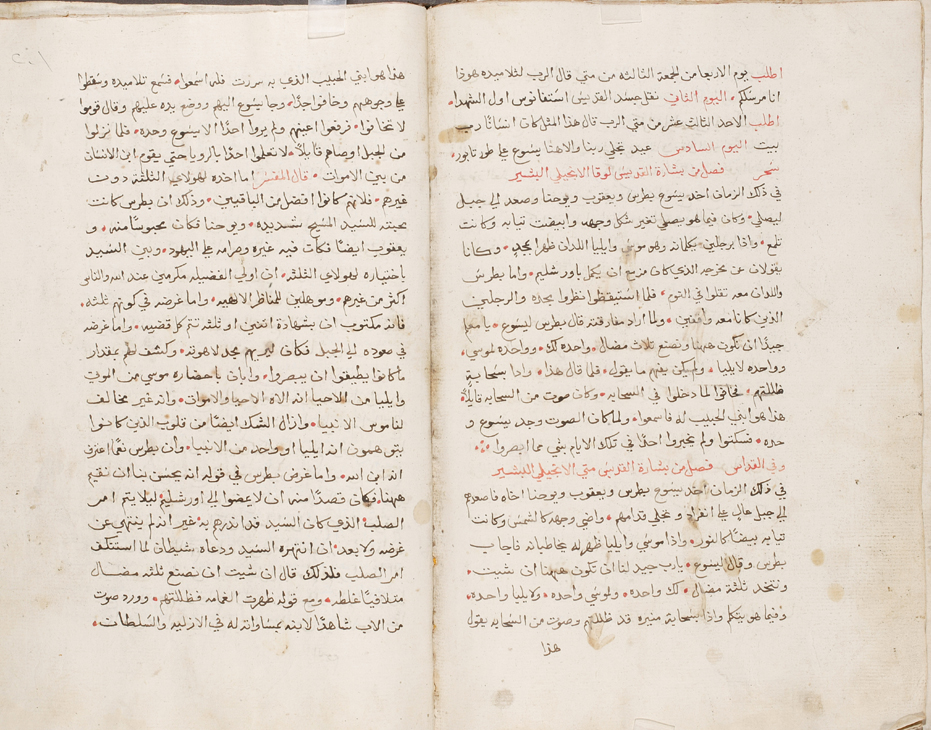 اطلب يوم الاربعا من الجمعة الثالثه من متي قال الرب لتلاميده هوذا
انا مرسلكم • اليوم الثاني نقل جسد القديس استفانوس اول الشهدا •
اطلب الاحد الثالث عشر من متي الرب قال هذا المثل كان انسانًا رب
بيت اليوم السادس عيد تجلي ربنا والاهنا يسوع علي طور تابور •
سَحَر فصل من بشارة القديس لوقا الانجيلي البشير
في ذلك الزمان اخد يسوع بطرس ويعقوب ويوحنا وصعد الي جبل
ليصلي • وكان فيما هو يصلي تغير شكل وجهه وابيضت تيابه وكانت
تلمع • واذا برجلين يكلمانه وهو موسي وايليا اللدان ظهرا بمجدٍ • وكانا
يقولان عن مخرجه الذي كان مزمع ان يكمل باورشليم • واما بطرس
واللدان معه تقلوا في النوم • فلما استيقظوا نظروا مجده والرجلين
الذين كانا معه واقفين • ولما اراد مفارقته قال بطرس ليسوع • يا معلم
جيدًا ان نكون ههنا ونصنع ثلاث مضال • واحده لك • وواحده لموسي •
وواحده لايليا • ولم يكن يفهم ما يقول • فلما قال هذا • واذا سحابة
ظللتهم • فخافوا لما دخلوا في السحابه • وكان صوت من السحابه قايلًا •
هذا هو ابني الحبيب له فاسمعوا • ولما كان الصوت وجد يسوع و
حده • فسكتوا ولم يخبروا احدًا في تلك الايام بشي مما ابصروا •
وفي القداس فصل من بشارة القديس متي الانجيلي البشير
في ذلك الزمان اخد يسوع بطرس ويعقوب ويوحنا اخاه فاصعدهم
الي جبل عالٍ علي انفراد وتجلي قدامهم • واضي وجهه كالشمس وكانت
تيابه بيضًا كالنور • واذا موسي وايليا ظهر له يخاطبانه فاجاب
بطرس وقال ليسوع • يارب جيد لنا ان نكون ههنا ان شيت •
ونتخد ثلثة مضال • لك واحده • ولموسي واحده • ولايليا واحده •
وفيما هو يتكلم واذا بسحابة منيره قد ظللتهم وصوت من السحابه يقول
هذا
هذا هو ابني الحبيب الذي به سررت فله اسمعوا • فسمع تلاميده وسقطوا
علي وجوههم وخافوا جدًا • وجا يسوع اليهم ووضع يده عليهم وقال قوموا
لا تخافوا • فرفعوا اعينهم ولم يروا احدًا الا يسوع وحده • فلما نزلوا
من الجبل اوصاهم قايلًا • لا تعلموا احدًا بالرويا حتي يقوم ابن الانسان
من بين الاموات • قال المفسّر اما اخده لهولاي الثلثة دون
غيرهم • فلانهم كانوا افضل من الباقيين • وذلك ان بطرس كانت
محبته للسيد المسيح شديده • ويوحنا فكان محبوبًا منه • و
يعقوب ايضًا فكات فيه غيره وصرامه علي اليهود • وبين السيد
باختياره لهولاي الثلثه • ان اولي الفضيله مكرمين عند الله والناس
اكثر من غيرهم • وموهلين للمناظر الالهيه • واما غرضه في كونهم ثلثه •
فانه مكتوب ان بشهادة اتنين او ثلثه تتم كل قضيه • واما غرضه
في صعوده الي الجبل فكان ليريهم مجد لاهوته • وكشف لهم بمقدار
ما كانوا يطيقوا ان يبصروا • وابان باحضاره موسي من الموتي
وايليا من الاحيا انه الاه الاحيا والاموات • وانه غير مخالف
لناموس الانبيا • وازال الشك ايضًا من قلوب الذين كانوا
يتوهمون انه ايليا او واحد من الانبيا • وان بطرس نعمًا اعترف
انه ابن الله • واما غرض بطرس في قوله انه يحسن بنا ان نقيم
ههنا • فكان قصدًا منه ان لا يمضوا الي اورشليم ليلا يتم امر
الصلب الذي كان السيد قد اندرهم به • غير انه لم ينتهي عن
غرضه ولا بعد ان انتهره السيد ودعاه شيطان لما استنكف
امر الصلب فلذلك قال ان شيت ان نصنع ثلثه مضال
متلافيًا غلطه • ومع قوله ظهرت الغمامه فظللتهم • وورد صوت
من الاب شاهدًا لابنه بمساواته له في الازليه والسلطان •